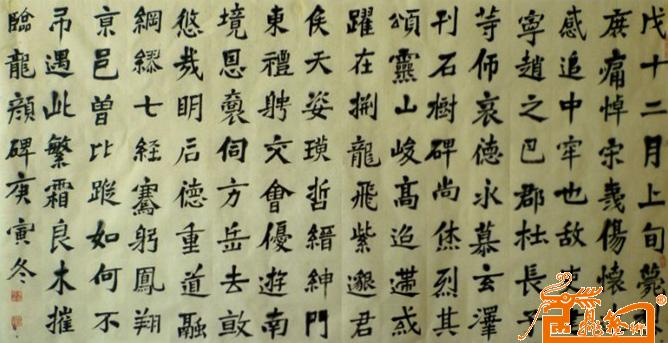 戊十二月上旬薨
庶痛悼宋義傷懷
感追中牢也故
寧趙之巴郡杜長子
等仰哀德永慕玄澤
刊石樹碑尚烋烈其
頌靈山峻高迢遰或
躍在捌龍飛紫邈君
侯天姿瑛哲縉紳門
東禮聘交會優遊南
境恩褱伺方岳去敢
悠哉明后德重道融
綢繆七經騫躬鳳翔
京邑曾比蹤如何不
吊遇此繁霜良木摧
臨龍顏碑庚寅冬